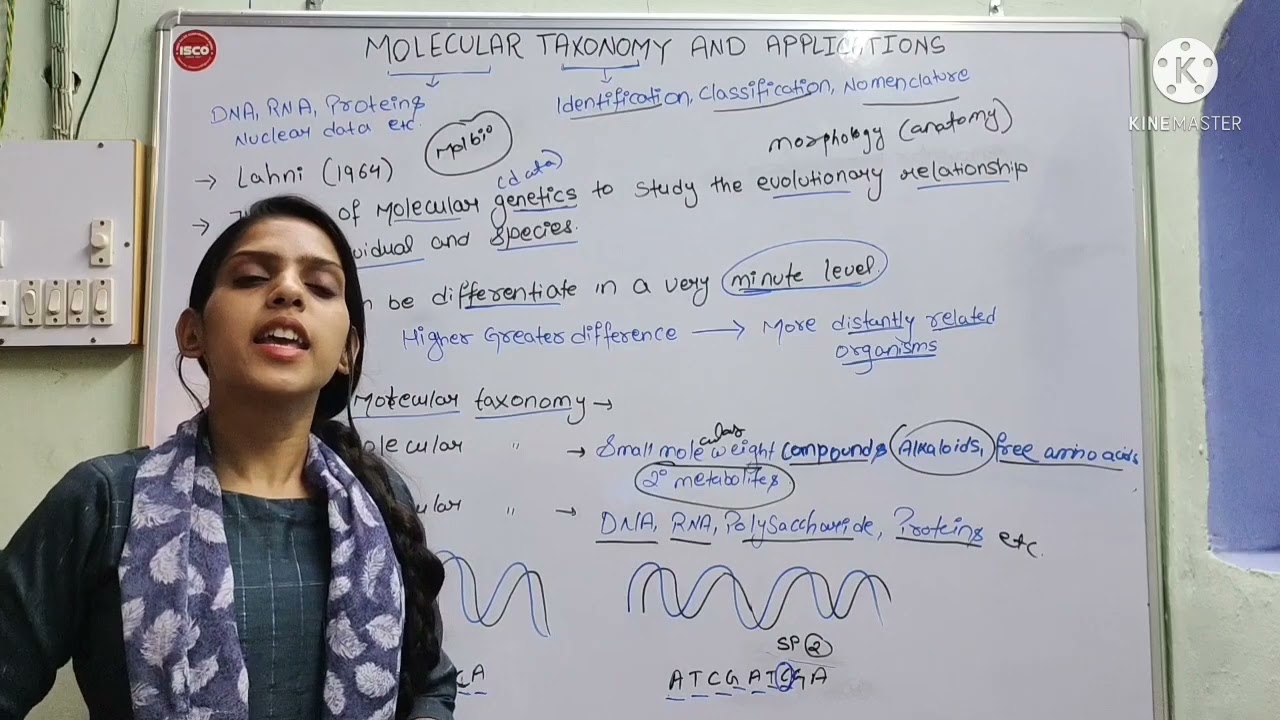 ISCO
MOLECULAR TAXONOMY AND APPLICATIONS
DNA, RNA, Proteins
Nuclear data etc.
Identification, Classification, Nomenclature
KINEMASTER
→ Lahni (1964)
Molbio
morphology (anatomy)
(data)
→ of Molecular genetics to study the evolutionary relationship
and Species.
be differentiate in a very minute level.
Higher Greater difference → More distantly related
organisms
Molecular taxonomy →
olecular " → Small molecular weight compounds, Alkaloids, free amino acids
2° metabolites
ular " → DNA, RNA, Polysaccharide, Proteins etc.
SP 2
A
A T C G A T C G A